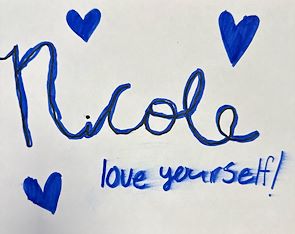 Nicole
love yourself!